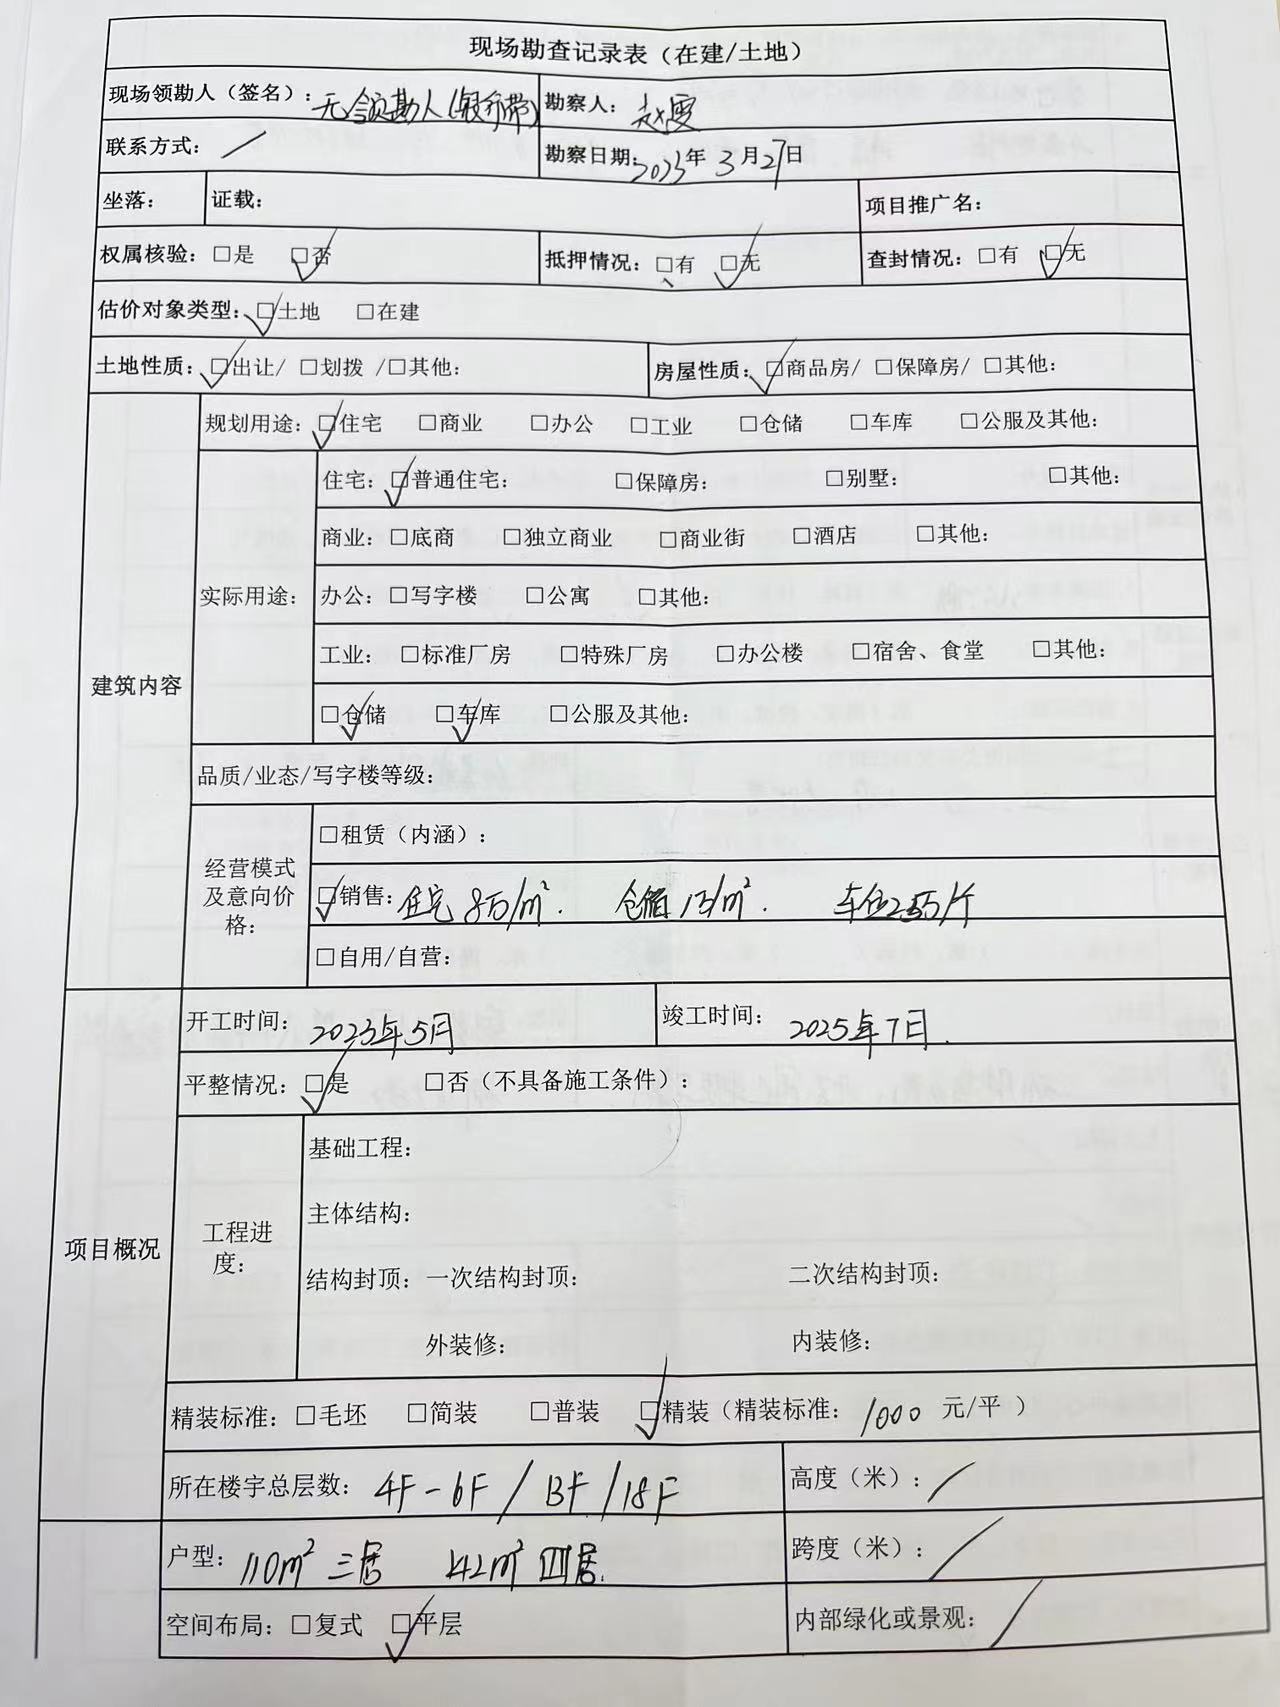 现场勘查记录表（在建/土地）
现场领勘人（签名）：无领勘人(银行带) 勘察人：赵雯
联系方式： / 勘察日期：2023年 3月27日
坐落： 证载： 项目推广名：
权属核验：□是 ☑否 抵押情况：□有 ☑无 查封情况：□有 ☑无
估价对象类型：☑土地 □在建
土地性质：☑出让/ □划拨 /□其他： 房屋性质：☑商品房/ □保障房/ □其他：
建筑内容
规划用途：☑住宅 □商业 □办公 □工业 □仓储 □车库 □公服及其他：
实际用途：
住宅：☑普通住宅： □保障房： □别墅： □其他：
商业：□底商 □独立商业 □商业街 □酒店 □其他：
办公：□写字楼 □公寓 □其他：
工业：□标准厂房 □特殊厂房 □办公楼 □宿舍、食堂 □其他：
☑仓储 ☑车库 □公服及其他：
品质/业态/写字楼等级：
经营模式
及意向价
格：
□租赁（内涵）：
☑销售：住宅 8万/m². 仓储 1万/m². 车位25万/个
□自用/自营：
项目概况
开工时间：2023年5月 竣工时间：2025年7月.
平整情况：☑是 □否（不具备施工条件）：
工程进
度：
基础工程：
主体结构：
结构封顶：一次结构封顶： 二次结构封顶：
外装修： 内装修：
精装标准：□毛坯 □简装 □普装 ☑精装（精装标准：1000 元/平 ）
所在楼宇总层数：4F-6F / 13F /18F 高度（米）： /
户型：110m² 三居 142m² 四居. 跨度（米）： /
空间布局：□复式 ☑平层 内部绿化或景观： /